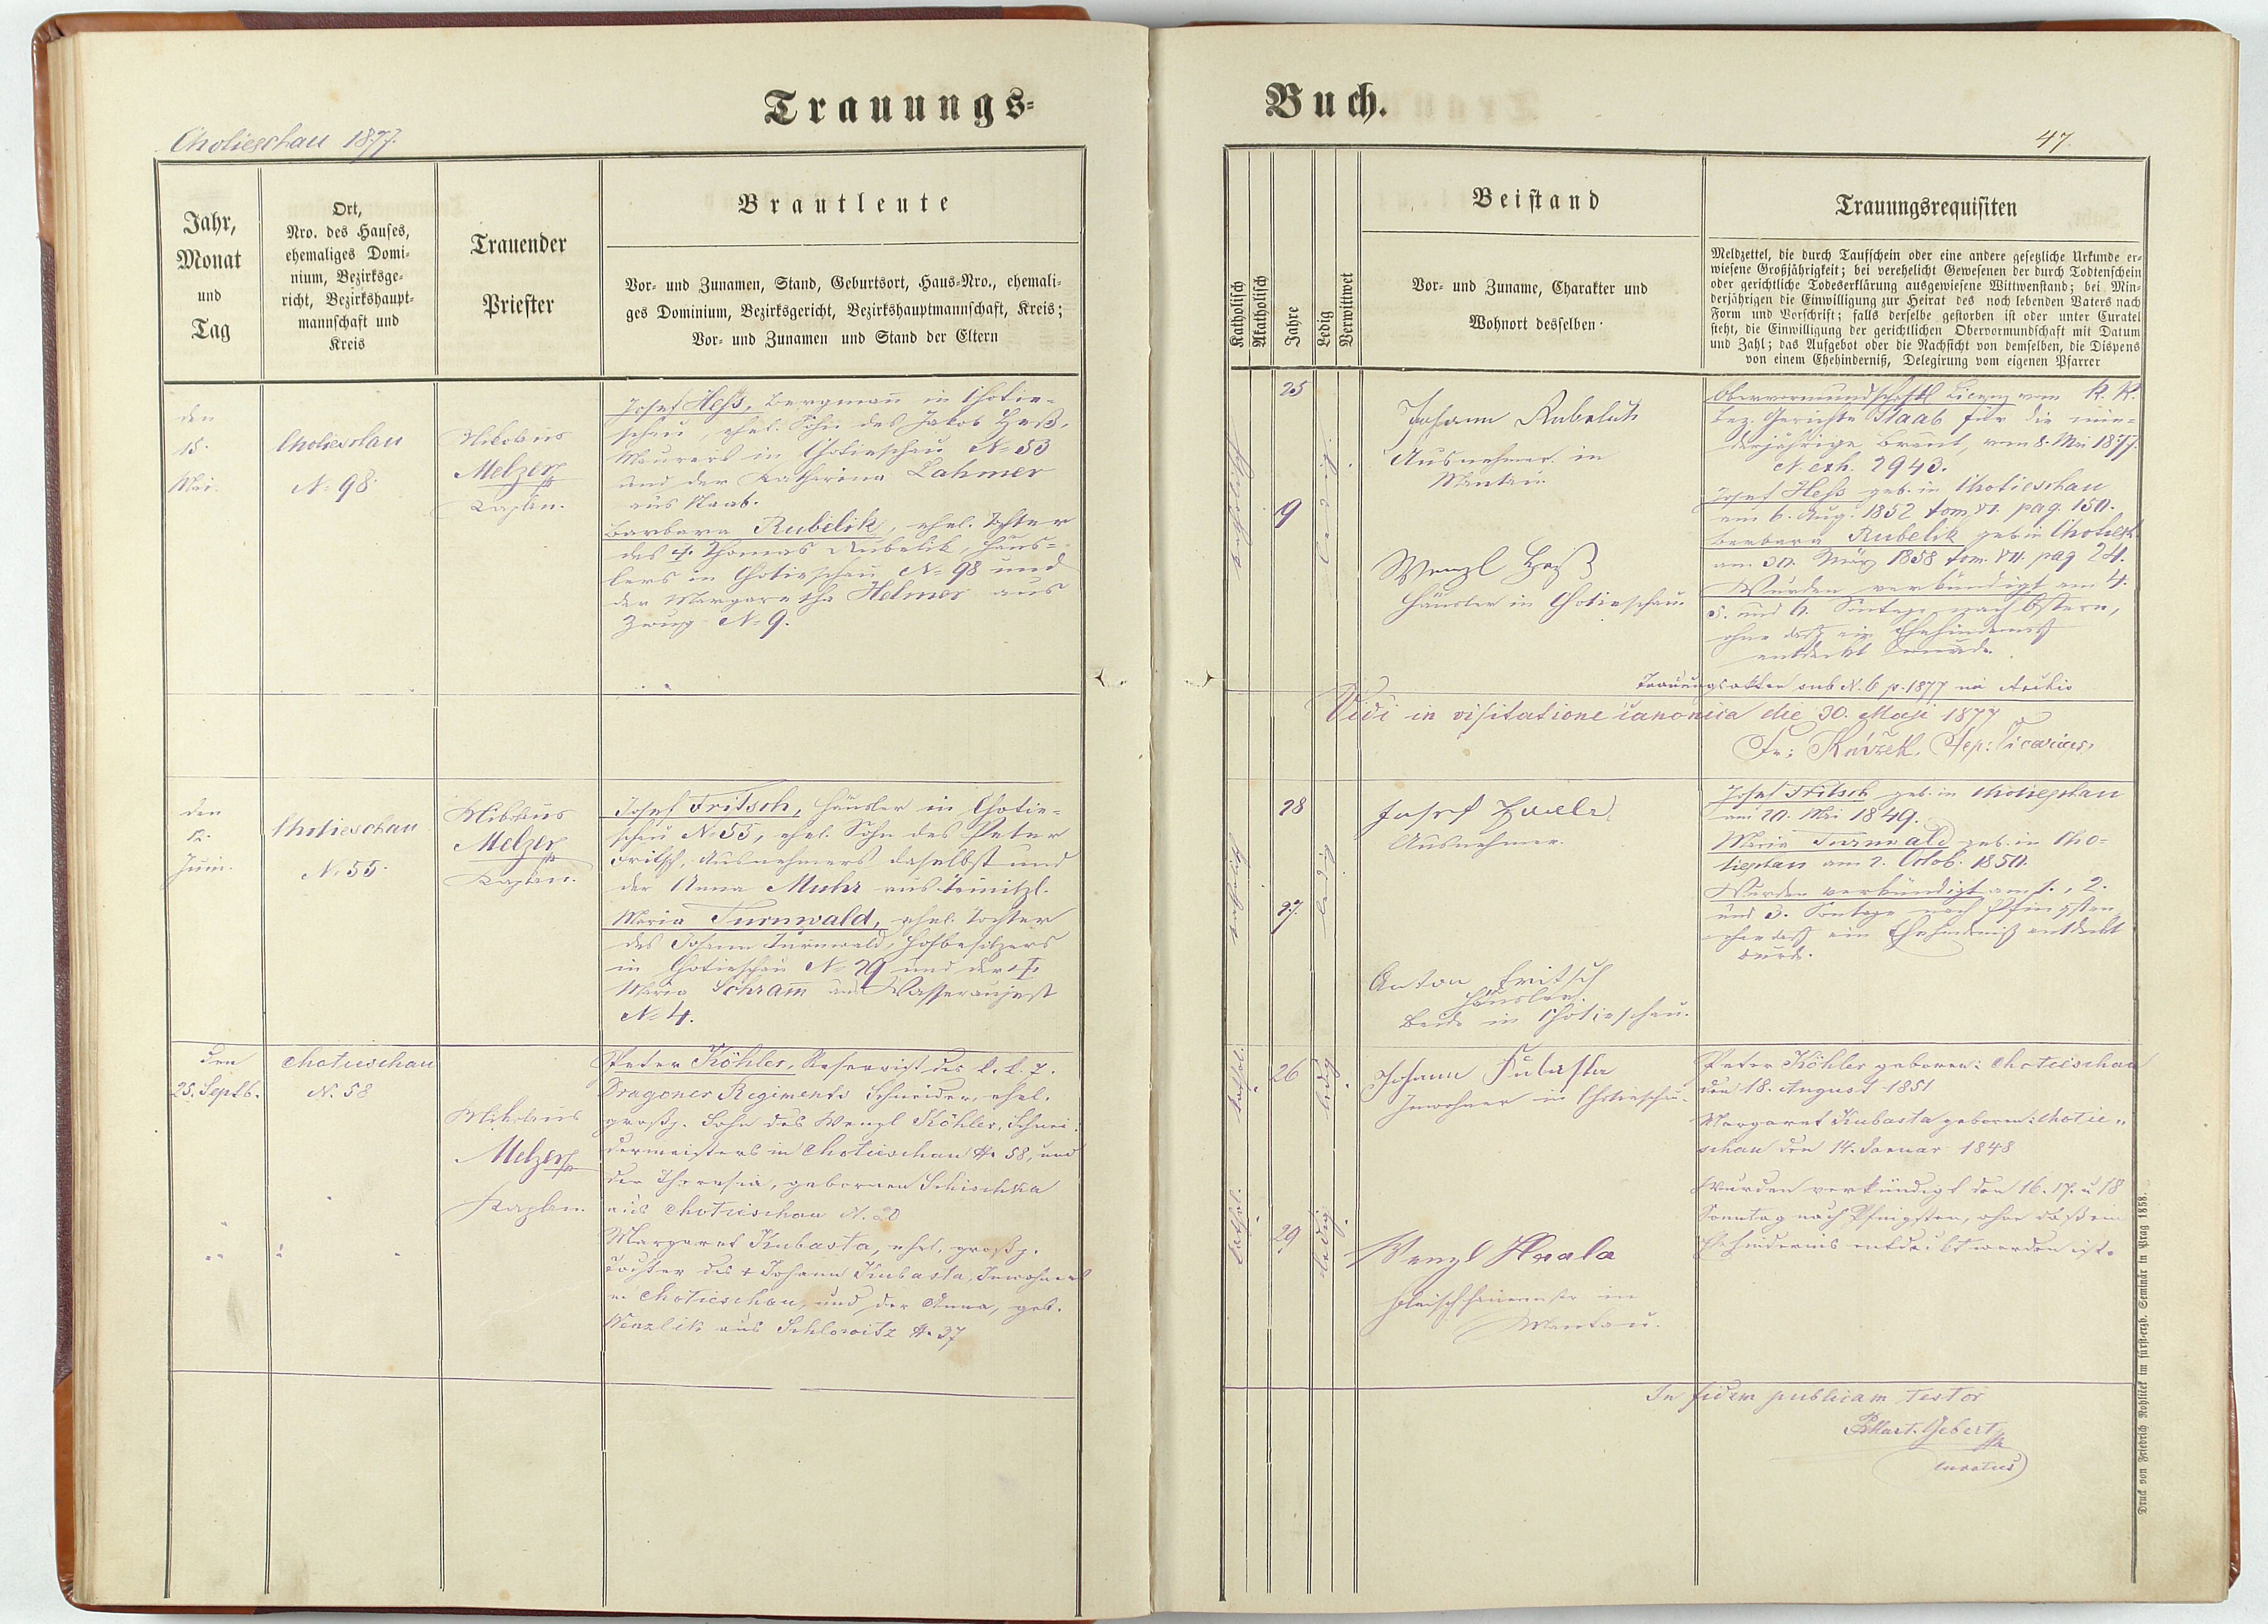 Trauungs-
Chotieschau 1877.
Jahr,
Monat
und
Tag
Ort,
Nro. des Hauses,
ehemaliges Domi-
nium, Bezirksge-
richt, Bezirkshaupt-
mannschaft und
Kreis
Trauender
Priester
Brautleute
Vor- und Zunamen, Stand, Geburtsort, Haus-Nro., ehemali-
ges Dominium, Bezirksgericht, Bezirkshauptmannschaft, Kreis;
Vor- und Zunamen und Stand der Eltern
den
15.
Mai.
Chotieschau
N. 98.
Nikolaus
Melzer
Kaplan.
Josef Heß, Bergmann in Chotie-
schau, ehel. Sohn des Jakob Heß,
Maurers in Chotieschau N. 53
und der Katharina Lahmer
aus Staab.
Barbara Rubelik, ehel. Tochter
des † Thomas Rubelik, Häus-
lers in Chotieschau N. 98 und
der Margaretha Helmer aus
Zwug N. 9.
den
12.
Juni.
Chotieschau
N. 55.
Nikolaus
Melzer
Kaplan.
Josef Fritsch, Häusler in Chotie-
schau N. 55, ehel. Sohn des Peter
Fritsch, Ausnehmers daselbst und
der Anna Muhr aus
Maria Turnwald, ehel. Tochter
des Johann Turnwald, Hofbesitzers
in Chotieschau N. 29 und der †
Maria Schram̄ aus Wasseraujest
N. 4.
den
25. Septb.
Chotieschau
N. 58
Nikolaus
Melzer
Kaplan.
Peter Köhler, Reservist des k. k. 7.
Dragoner Regiments Schneider, ehel.
großj. Sohn des Wenzl Köhler, Schnei-
dermeisters in Chotieschau N. 58, und
der Theresia, gebornen Schischka
aus Chotieschau N. 20
Margaret Kubasta, ehel. großj.
Tochter des † Johann Kubasta, Inwohners
in Chotieschau, und der Anna, geb.
Wenzlik aus Schlowitz N. 37
Buch.
47.
Katholisch
Akatholisch
Jahre
Ledig
Verwittwet
Beistand
Vor- und Zuname, Charakter und
Wohnort desselben.
Trauungsrequisiten
Meldzettel, die durch Taufschein oder eine andere gesetzliche Urkunde er-
wiesene Großjährigkeit; bei verehelicht Gewesenen der durch Todtenschein
oder gerichtliche Todeserklärung ausgewiesene Wittwenstand; bei Min-
derjährigen die Einwilligung zur Heirat des noch lebenden Vaters nach
Form und Vorschrift; falls derselbe gestorben ist oder unter Curatel
steht, die Einwilligung der gerichtlichen Obervormundschaft mit Datum
und Zahl; das Aufgebot oder die Nachsicht von demselben, die Dispens
von einem Ehehinderniß, Delegirung vom eigenen Pfarrer
katholisch
25
19
ledig.
Johann
Ausnehmer in
Mantau.
Wenzl Heß
Häusler in Chotieschau.
Obervormundschaftl. Licenz vom k. k.
Bez. Gerichte Staab für die min-
derjährige Braut, vom 8. Mai 1877.
N. exh. 2943.
Josef Heß geb. in Chotieschau
am 6. Aug. 1852 tom. VI. pag. 150.
Barbara Rubelik geb. in Chotiesch.
am 30. März 1858 tom. VII. pag 24.
Wurden verkündigt am 4.
5. und 6. Sontage nach Ostern,
ohne daß ein Ehehinderniß
entdeckt wurde.
Trauungsakten sub N. 6 p. 1877 im Archiv
Vidi in visitatione canonica die 30. Maji 1877
Fr: Knížek, Vicarius.
katholisch
28
27.
ledig
Josef
Ausnehmer.
Anton Fritsch
Häusler.
Beide in Chotieschau.
Josef Fritsch geb. in Chotieschau
am 20. Mai 1849.
Maria Turnwald geb. in Cho-
tieschau am 2. Octob. 1850.
Wurden verkündigt am 1., 2.
und 3. Sontage nach Pfingsten,
ohne daß ein Ehehinderniß entdeckt
wurde.
kathol.
26
ledig
Johann
Inwohner in Chotieschau.
kathol.
29
ledig.
Wenzl Hrala
Fleischhauer in
Mantau.
Peter Köhler geboren: Chotieschau
den 18. August 1851
Margaret Kubasta geboren: Chotie-
schau den 14. Januar 1848
Wurden verkündigt den 16. 17. u 18
Sonntag nach Pfingsten, ohne daß ein
Ehehinderniß entdeckt worden ist.
In fidem publicam testor
P. Mart. Gebert
curatus
Druck von Friedrich Rohliček im fürst-erzb. Seminär in Prag 1858.